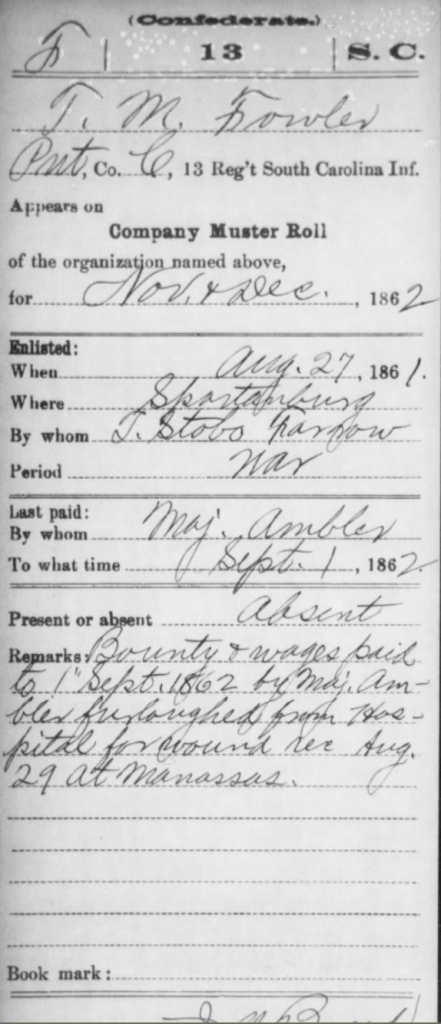 (Confederate.)
F | 13 | S. C.
T. M. Fowler
Pvt, Co. C, 13 Reg't South Carolina Inf.
Appears on
Company Muster Roll
of the organization named above,
for Nov. & Dec., 1862
Enlisted:
When Aug. 27, 1861.
Where Spartanburg
By whom T. Stobo Farrow
Period War
Last paid:
By whom Maj. Ambler
To what time Sept. 1, 1862
Present or absent Absent
Remarks: Bounty & wages paid
to 1" Sept. 1862 by Maj. Am-
bler furloughed from Hos-
pital for wound rec Aug.
29 at Manassas.
Book mark: